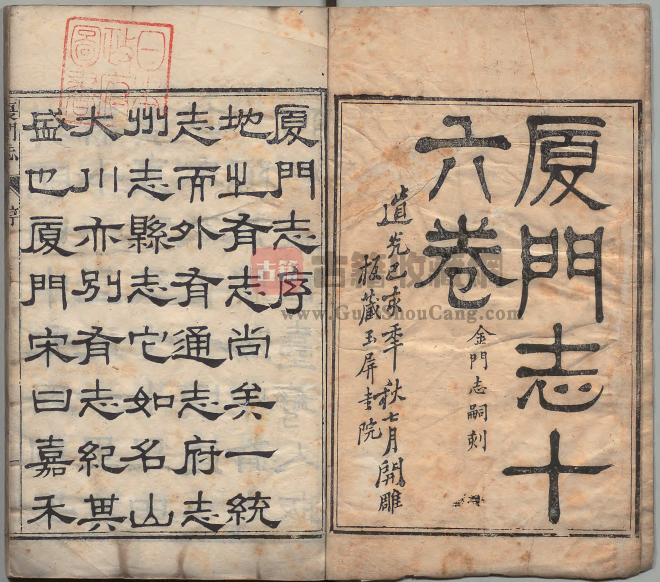 厦門志十
六卷
金門志嗣刺
道光己亥季秋七月開雕
板藏玉屏書院
厦門志序
地之有志尚矣一統
志而外有通志府志
州志縣志它如名山
大川亦別有志紀其
盛也厦門宋曰嘉禾
厦門志
序
www.GuJiShouCang.com